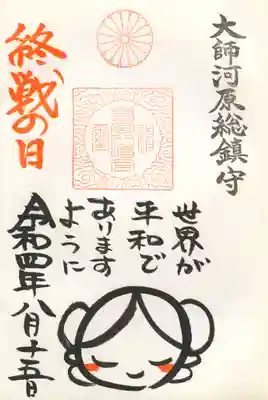 大師河原総鎮守
終戦の日
世界が
平和で
あります
ように
令和四年八月十五日